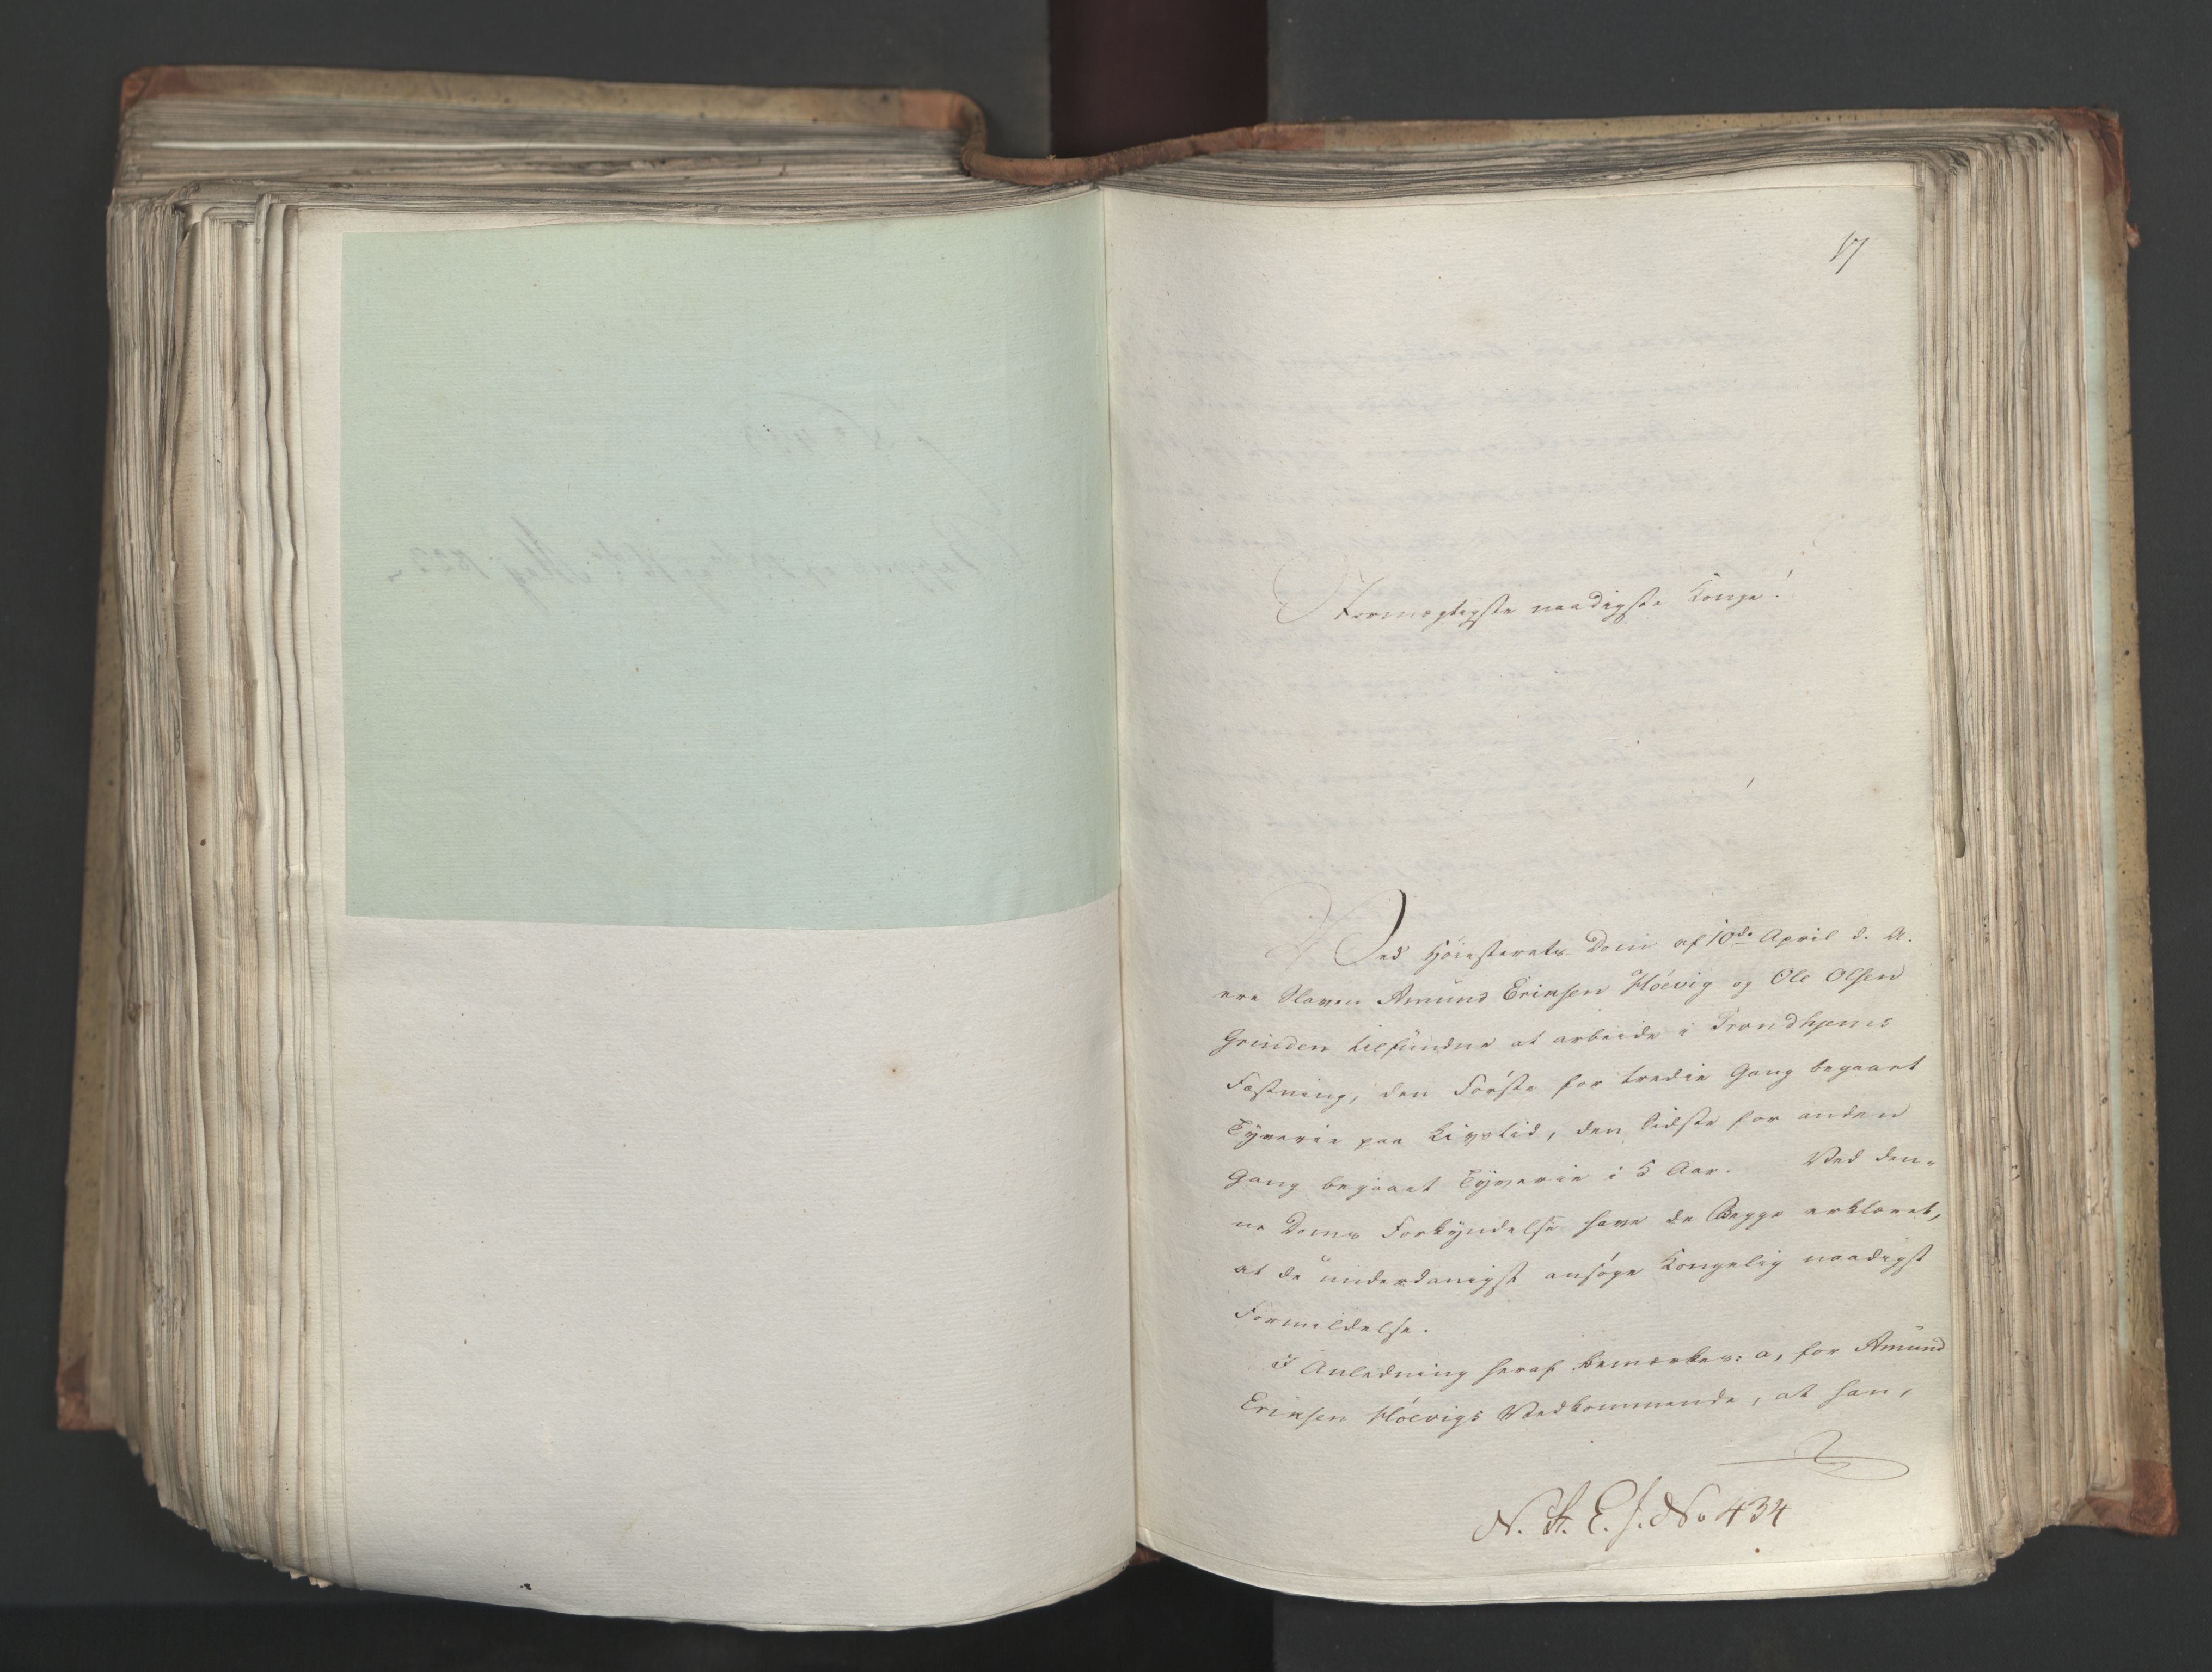 17
Stormægtigste naadigste Konge!
Ved Høiesterets Dom af 10de April d. A.
ere Slaven Amund Eriksen Höevig og Ole Olsen
Grinden tilfundne at arbeide i Trondhjems
Fæstning, den Første for tredie Gang begaaet
Tyverie paa Livstid, den Sidste for anden
Gang begaaet Tyverie i 5 Aar. Ved den-
ne Doms Forkyndelse have de Begge erklæret,
at de underdanigst ansøge Kongelig naadigst
Formildelse.
I Anledning heraf bemærkes: a, for Amund
Eriksen Höevigs Vedkommende, at han,
N. St. E. J. No 434